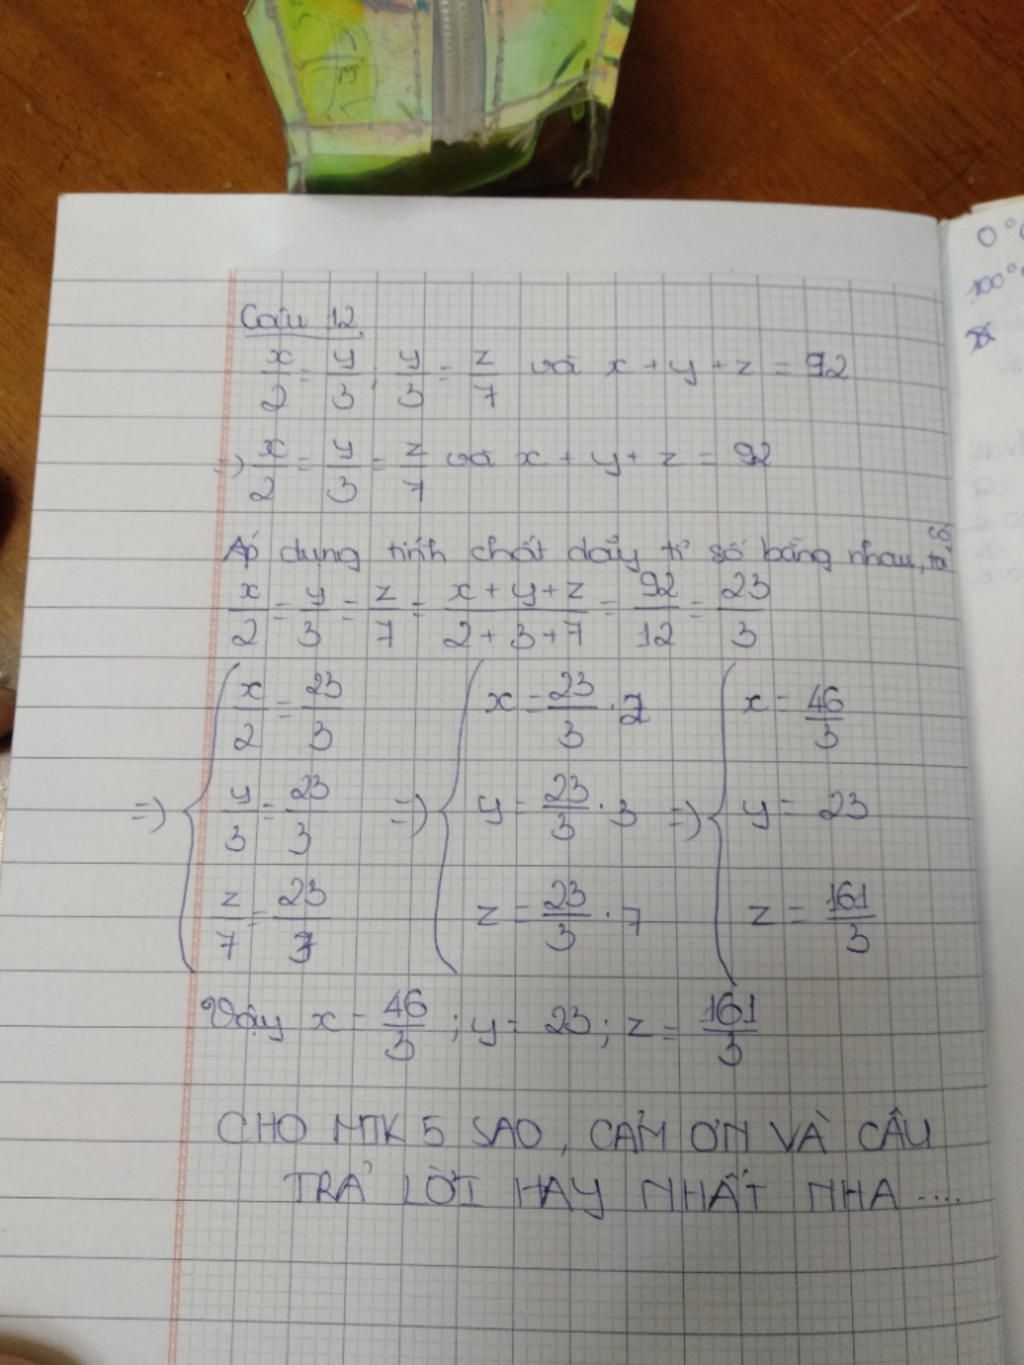 Câu 12.
x/2 = y/3 ; y/3 = z/7 và x + y + z = 92
=) x/2 = y/3 = z/7 và x + y + z = 92
Áp dụng tính chất dãy tỉ số bằng nhau, ta có
x/2 = y/3 = z/7 = (x + y + z)/(2 + 3 + 7) = 92/12 = 23/3
=) { x/2 = 23/3 =) { x = 23/3 . 2 =) { x = 46/3
y/3 = 23/3 y = 23/3 . 3 y = 23
z/7 = 23/3 z = 23/3 . 7 z = 161/3
Vậy x = 46/3 ; y = 23 ; z = 161/3
CHO MTK 5 SAO, CẢM ƠN VÀ CÂU
TRẢ LỜI HAY NHẤT NHA ....
0°
100°